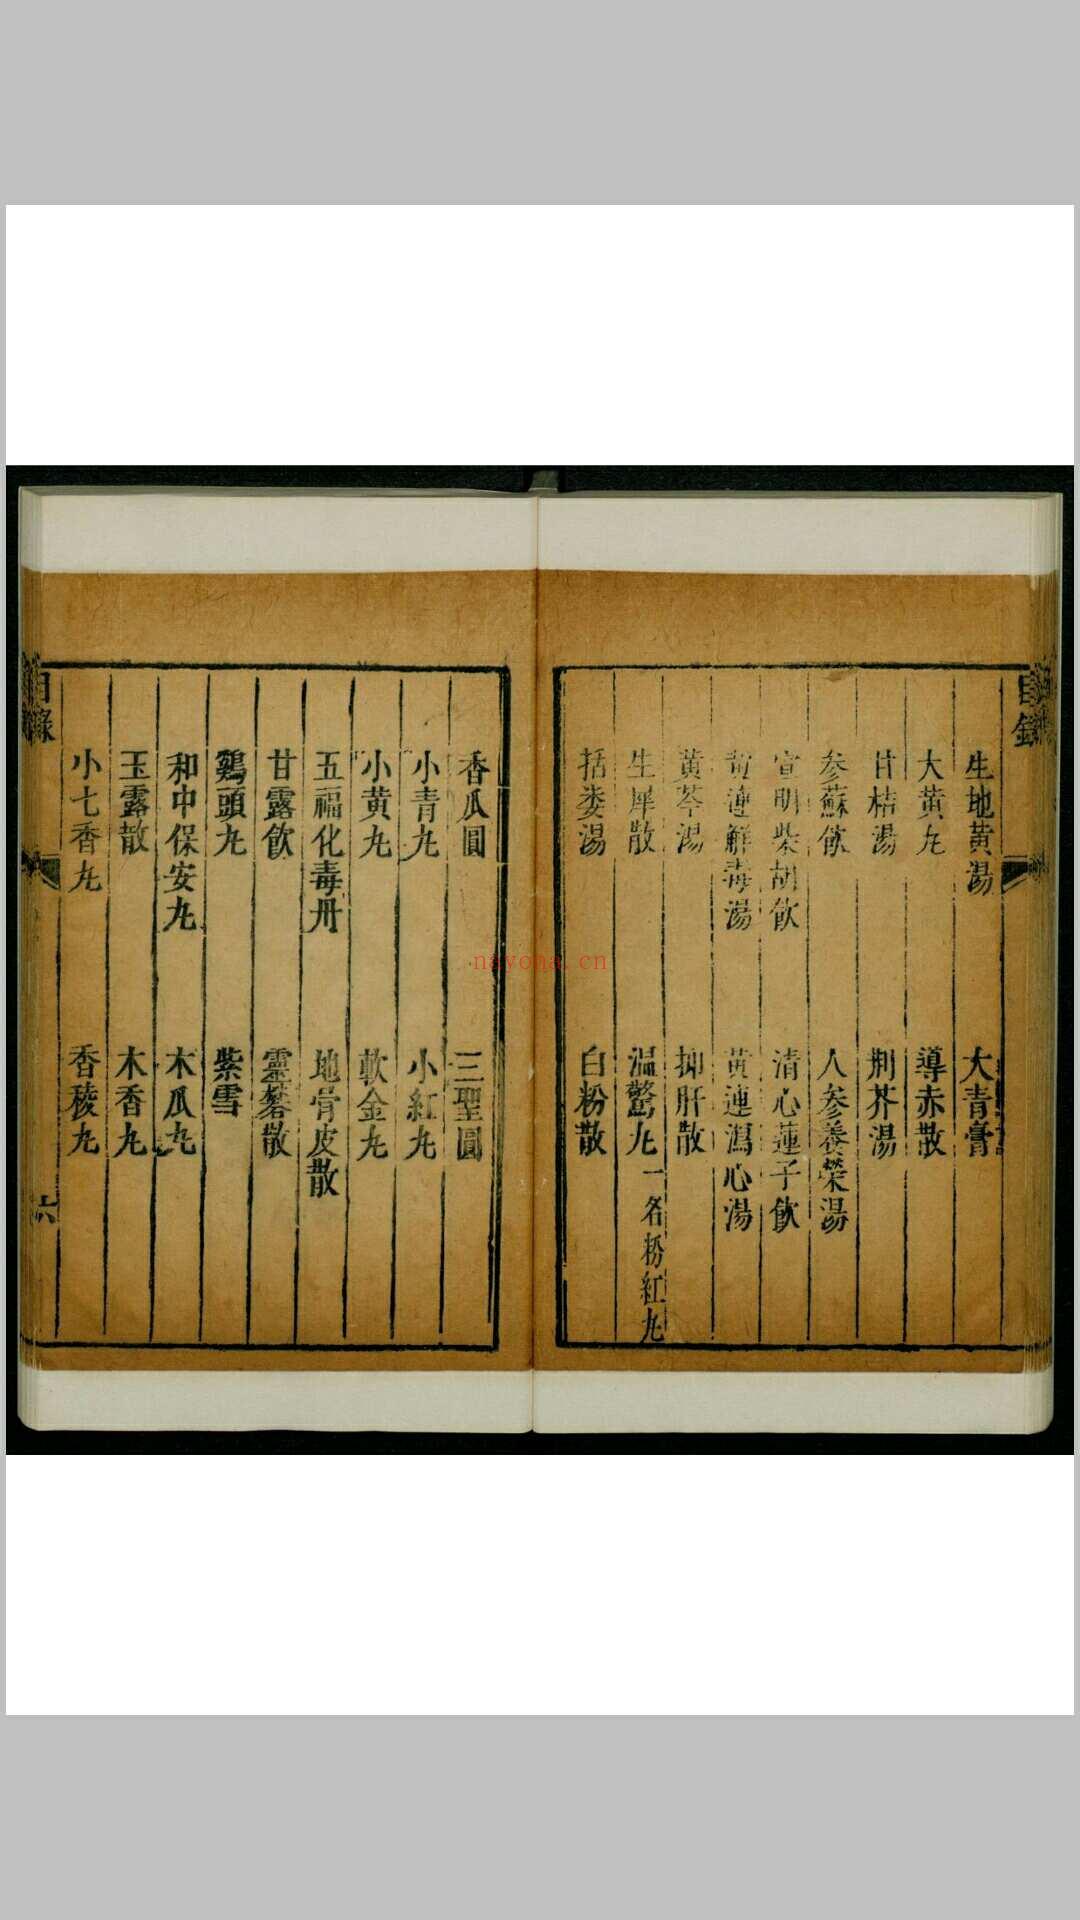 目錄
生地黄湯 大青膏
大黄丸 導赤散
甘桔湯 荆芥湯
参蘇飲 人参養榮湯
宣明柴胡飲 清心蓮子飲
黄連解毒湯 黄連瀉心湯
黄芩湯 抑肝散
生犀散 温驚丸 一名粉紅丸
括蒌湯 白粉散
香瓜圓 三聖圓
小青丸 小紅丸
小黄丸 軟金丸
五福化毒丹 地骨皮散
甘露飲 靈礬散
鷄頭丸 紫雪
和中保安丸 木瓜丸
玉露散 木香丸
小七香丸 香稜丸
目錄
六
nayona.cn